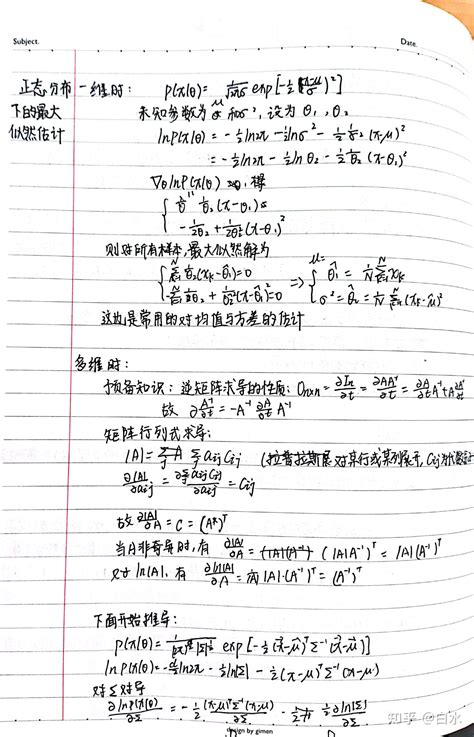 Subject.
Date.
正态分布 一维时: p(x|θ) = 1/√2πσ exp[-½(x-μ/σ)²]
下的最大 未知参数为 μ 和σ², 设为 θ₁, θ₂
似然估计 lnp(x|θ) = -½ln2π -½lnσ² - ½ 1/σ² (x-μ)²
= -½ln2π - ½lnθ₂ - ½ 1/θ₂ (x-θ₁)²
∇θ lnp(x|θ)
{ 1/θ₂(x-θ₁)
-1/2θ₂ + 1/2θ₂²(x-θ₁)²
则对所有样本,最大似然解为
{ Σ 1/θ₂(xₖ-θ̂₁)=0 => { μ̂= θ̂₁ = 1/N Σ xₖ
-Σ 1/θ̂₂ + 1/θ̂₂²(x-θ̂₁)²=0 σ² = θ̂₂ = 1/N Σ (xₖ-μ̂)²
这也是常用的对均值与方差的估计
多维时:
预备知识: 逆矩阵求导的性质: 0nxn = ∂In/∂t = ∂AA⁻¹/∂t = ∂A/∂t A⁻¹ + A ∂A⁻¹/∂t
故 ∂A⁻¹/∂t = -A⁻¹ ∂A/∂t A⁻¹
矩阵行列式求导:
|A| = Σ aij Cij (拉普拉斯展 对某行或某列展开, Cij
∂|A|/∂aij = ∂Σ aij Cij/∂aij = Cij
故 ∂|A|/∂A = C = (A*)ᵀ
当A非奇异时, 有 ∂|A|/∂A = (|A|A⁻¹)ᵀ = |A|(A⁻¹)ᵀ
对 ln|A|, 有 ∂ln|A|/∂A = 1/|A| |A|·(A⁻¹)ᵀ = (A⁻¹)ᵀ
下面开始推导:
p(x|θ) = exp[-½(x⃗-μ⃗)ᵀΣ⁻¹(x⃗-μ⃗)]
lnp(x|θ) = -d/2 ln2π - ½ln|Σ| - ½(x-μ)ᵀΣ⁻¹(x-μ)
对Σ求导
∂lnp(x|θ)/∂Σ = -½ (x-μ)ᵀΣ⁻¹(x-μ)/∂Σ - ½ ∂ln|Σ|/∂Σ
知乎 @白水
design by gimen